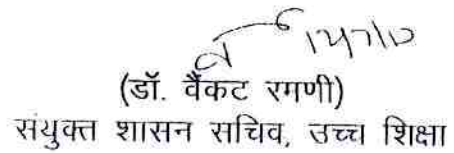 (डॉ. वैंकट रमणी)
संयुक्त शासन सचिव, उच्च शिक्षा